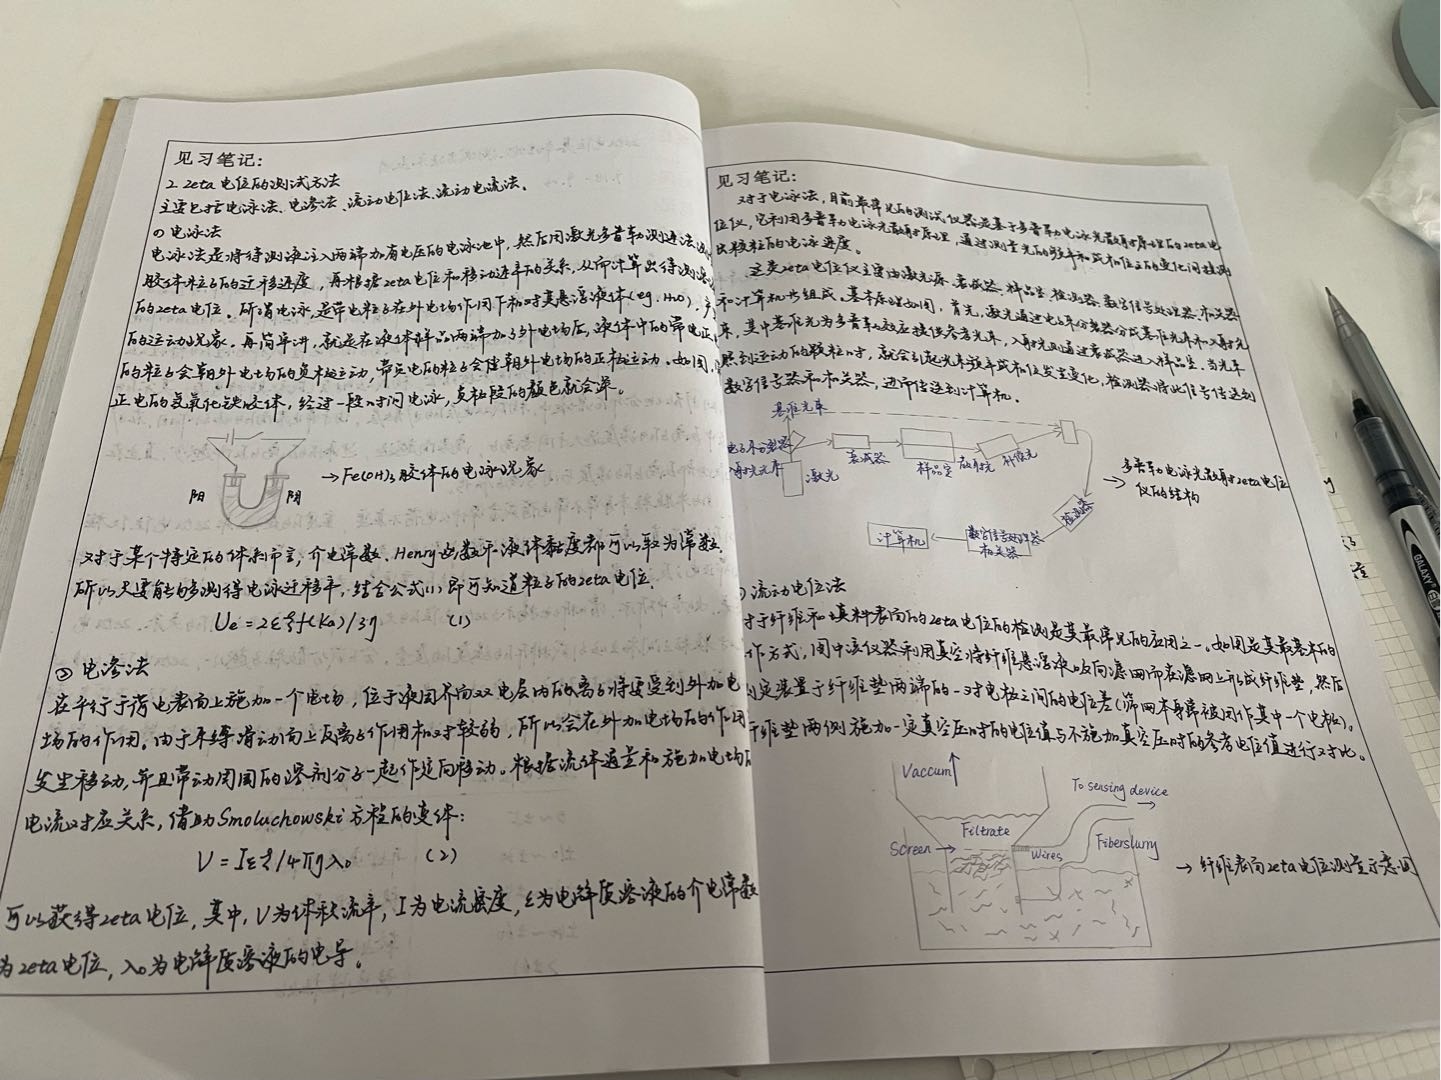 见习笔记:
2. zeta电位的测试方法
主要包括电泳法、电渗法、流动电位法、流动电流法。
① 电泳法
电泳法是将待测液注入两端加有电压的电泳池中,然后用激光多普勒测速法测
胶体粒子的迁移速度,再根据zeta电位和移动速率的关系,从而计算出待测
的zeta电位。所谓电泳,是带电粒子在外电场作用下相对其悬浮液体(eg. H₂O),产
的运动现象。再简单讲,就是在液体样品两端加了外电场后,液体中的带电正
的粒子会朝外电场的负极运动,带负电的粒子会往朝外电场的正极运动。如图,
正电的氢氧化铁胶体,经过一段时间电泳,负极段的颜色就会深。
阳 阴
→Fe(OH)₃胶体的电泳现象
对于某个特定的体系而言,介电常数、Henry函数和液体黏度都可以取为常数,
所以只要能够测得电泳迁移率,结合公式(1)即可知道粒子的zeta电位。
Ue=2εξf(Ka)/3η (1)
② 电渗法
在平行于荷电表面上施加一个电场,位于液固界面双电层内的离子将要受到外加电
场的作用。由于束缚滑动面上反离子作用相对较弱,所以会在外加电场的作用
发生移动,并且带动周围的溶剂分子一起作定向移动。根据流体通量和施加电场
电流对应关系,借助Smoluchowski方程的变体:
V=Iεξ/4πηλ₀ (2)
可以获得zeta电位,其中,V为体积流率,I为电流密度,ε为电解质溶液的介电常数
为zeta电位,λ₀为电解质溶液的电导。
见习笔记:
对于电泳法,目前最常见的测试仪器是基于多普勒电泳光散射原理的zeta电
位仪,它利用多普勒电泳光散射原理,通过测量光的频率和或相位上的变化间接测
出颗粒的电泳速度。
这类zeta电位仪主要由激光源、衰减器、样品室、检测器、数字信号处理器、相关器
和计算机共组成。基本原理如图,首先,激光通过电子束分裂器分成基准光束和入射光
束,其中基准光为多普勒效应提供参考光束,入射光则通过衰减器进入样品室。当光束
照到运动的颗粒时,就会引起光束频率或相位发生变化,检测器将此信号传送到
数字信号器和相关器,进而传送到计算机。
基准光束
电子束分裂器
入射光光束
激光
衰减器
样品室
散射光
补偿光
检测器
数字信号处理器
相关器
计算机
→多普勒电泳光散射zeta电位
仪的结构
) 流动电位法
对于纤维和填料表面的zeta电位的检测是其最常见的应用之一。如图是其最基本的
作方式,图中该仪器利用真空将纤维悬浮液吸向滤网而在滤网上形成纤维垫,然后
测定装置于纤维垫两端的一对电极之间的电位差(筛网本身常被用作其中一个电极)。
纤维垫两侧施加一定真空压时的电位值与不施加真空压时的参考电位值进行对比。
Vaccum↑
To sensing device
Filtrate
Screen
Wires
Fiberslurry
→ 纤维表面zeta电位测量示意图
GALAXY